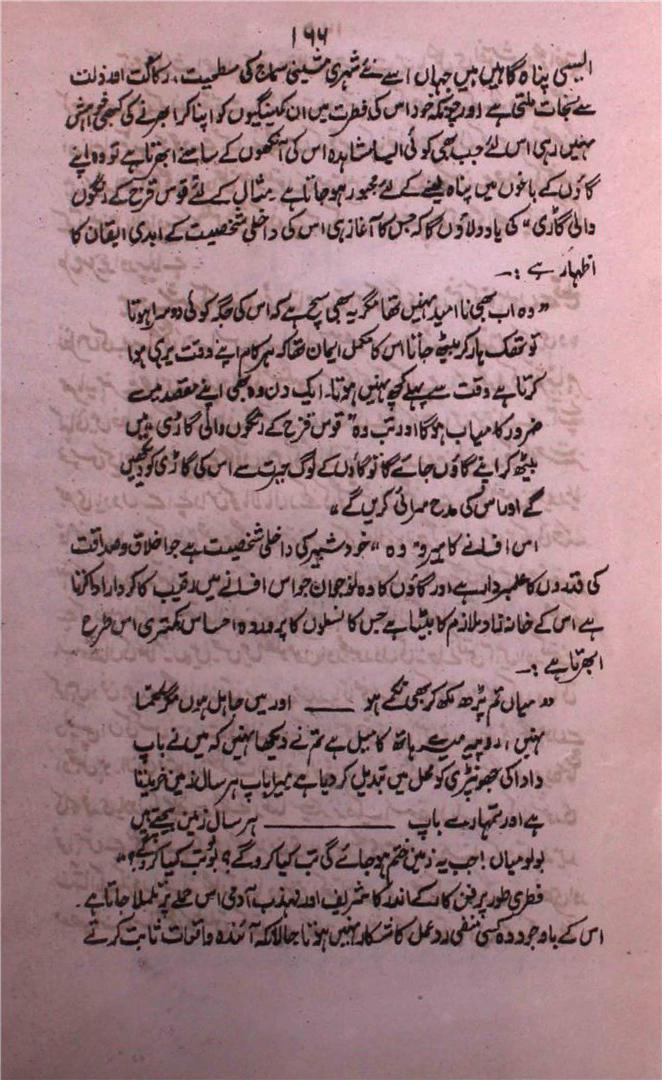 ۱۶۶
الیسی پناہ گاہیں ہیں جہاں اسے نئے شہری مشینی سماج کی سطحیت، رکاکت اور ذلت
سے نجات ملتی ہے اور چونکہ خود اس کی فطرت میں ان کمینگیوں کو اپنا کر ابھرنے کی کبھی خواہش
نہیں رہی اس لئے جب بھی کوئی ایسا مشاہدہ اس کی آنکھوں کے سامنے ابھرتا ہے تو وہ اپنے
گاؤں کے باغوں میں پناہ لینے کے لئے مجبور ہو جاتا ہے۔ مثال کے لئے قوس قزح کے رنگوں
والی گاڑی" کی یاد دلاؤں گا کہ جس کا آغاز ہی اس کی داخلی شخصیت کے ابدی ایقان کا
اظہار ہے :۔
"وہ اب بھی نا امید نہیں تھا مگر یہ بھی سچ ہے کہ اس کی جگہ کوئی دوسرا ہوتا
تو تھک ہار کر بیٹھ جاتا اس کا مکمل ایمان تھا کہ ہر کام اپنے وقت پر ہی ہوا
کرتا ہے وقت سے پہلے کچھ نہیں ہوتا۔ ایک دن وہ بھی اپنے مقصد میں
ضرور کامیاب ہوگا اور تب وہ "قوس قزح کے رنگوں والی گاڑی" میں
بیٹھ کر اپنے گاؤں جائے گا تو گاؤں کے لوگ حیرت سے اس کی گاڑی کو دیکھیں
گے اور اس کی مدح سرائی کریں گے"
اس افسانے کا ہیرو "وہ" خود شبیر کی داخلی شخصیت ہے جو اخلاق و صداقت
کی قدروں کا علمبردار ہے اور گاؤں کا وہ نوجوان جو اس افسانے میں رقیب کا کردار ادا کرتا
ہے اس کے خانہ زاد ملازم کا بیٹا ہے جس کا نسلوں کا پروردہ احساس کمتری اس طرح
ابھرتا ہے :۔
"میاں تم پڑھ لکھ کر بھی نکمے ہو ــــــ اور میں جاہل ہوں مگر نکما
نہیں، روپیہ میرے ہاتھ کا میل ہے تم نے دیکھا نہیں کہ میں نے باپ
دادا کی جھونپڑی کو محل میں تبدیل کر دیا ہے میرا باپ ہر سال زمین خریدتا
ہے اور تمہارے باپ ــــــــــــــ ہر سال زمین بیچتے ہیں
بولو میاں! جب یہ زمین ختم ہو جائے گی تب کیا کرو گے؟ بولو تب کیا کرو گے؟"
فطری طور پر فن کار کے اندر کا شریف اور مہذب آدمی اس حملے پر تلملا جاتا ہے۔
اس کے باوجود وہ کسی منفی رد عمل کا شکار نہیں ہوتا حالانکہ آئندہ واقعات ثابت کرتے